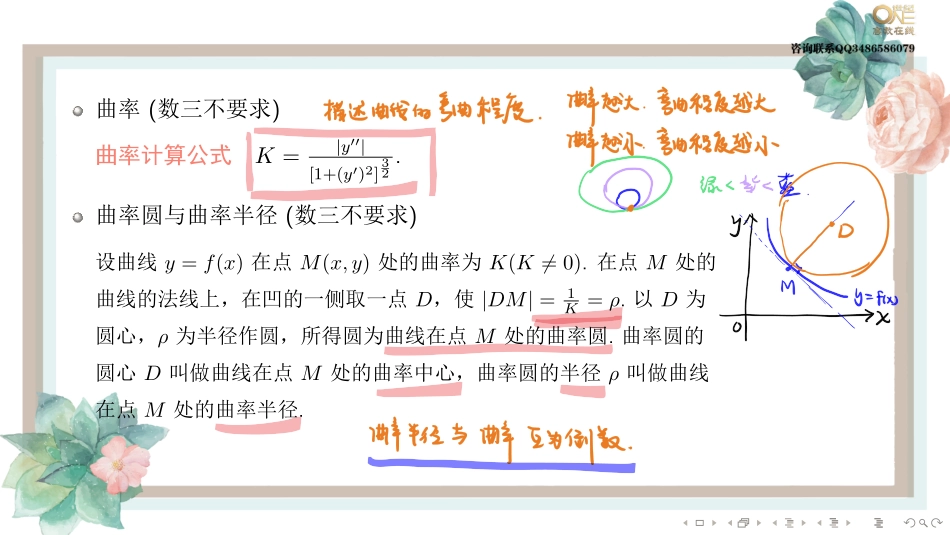 ONE
高数在线
咨询联系QQ3486586079
曲率 (数三不要求)
描述曲线的弯曲程度.
曲率越大.弯曲程度越大
曲率越小.弯曲程度越小
曲率计算公式 K = |y′′| / [1+(y′)²]^{3/2}.
绿<紫<蓝.
曲率圆与曲率半径 (数三不要求)
设曲线 y = f(x) 在点 M(x, y) 处的曲率为 K(K ≠ 0). 在点 M 处的
曲线的法线上，在凹的一侧取一点 D，使 |DM| = 1/K = ρ. 以 D 为
圆心，ρ 为半径作圆，所得圆为曲线在点 M 处的曲率圆. 曲率圆的
圆心 D 叫做曲线在点 M 处的曲率中心，曲率圆的半径 ρ 叫做曲线
在点 M 处的曲率半径.
y
D
M
y=f(x)
0
x
曲率半径与曲率互为倒数.